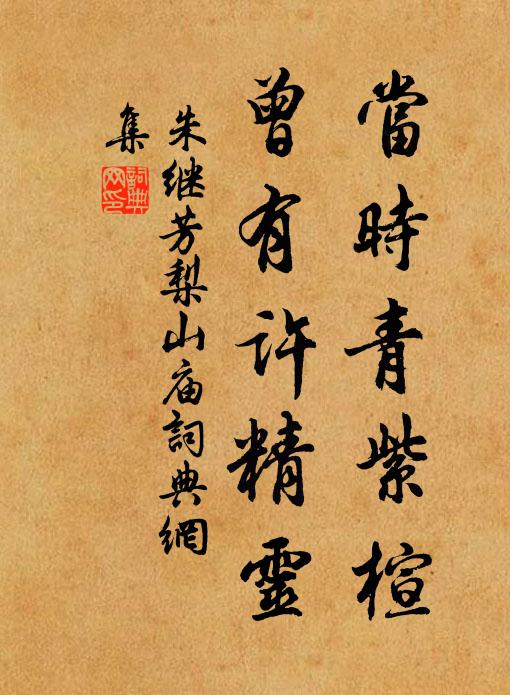 當時青紫楦
曾有許精靈
朱继芳梨山庙詞典網
集
詞典网印